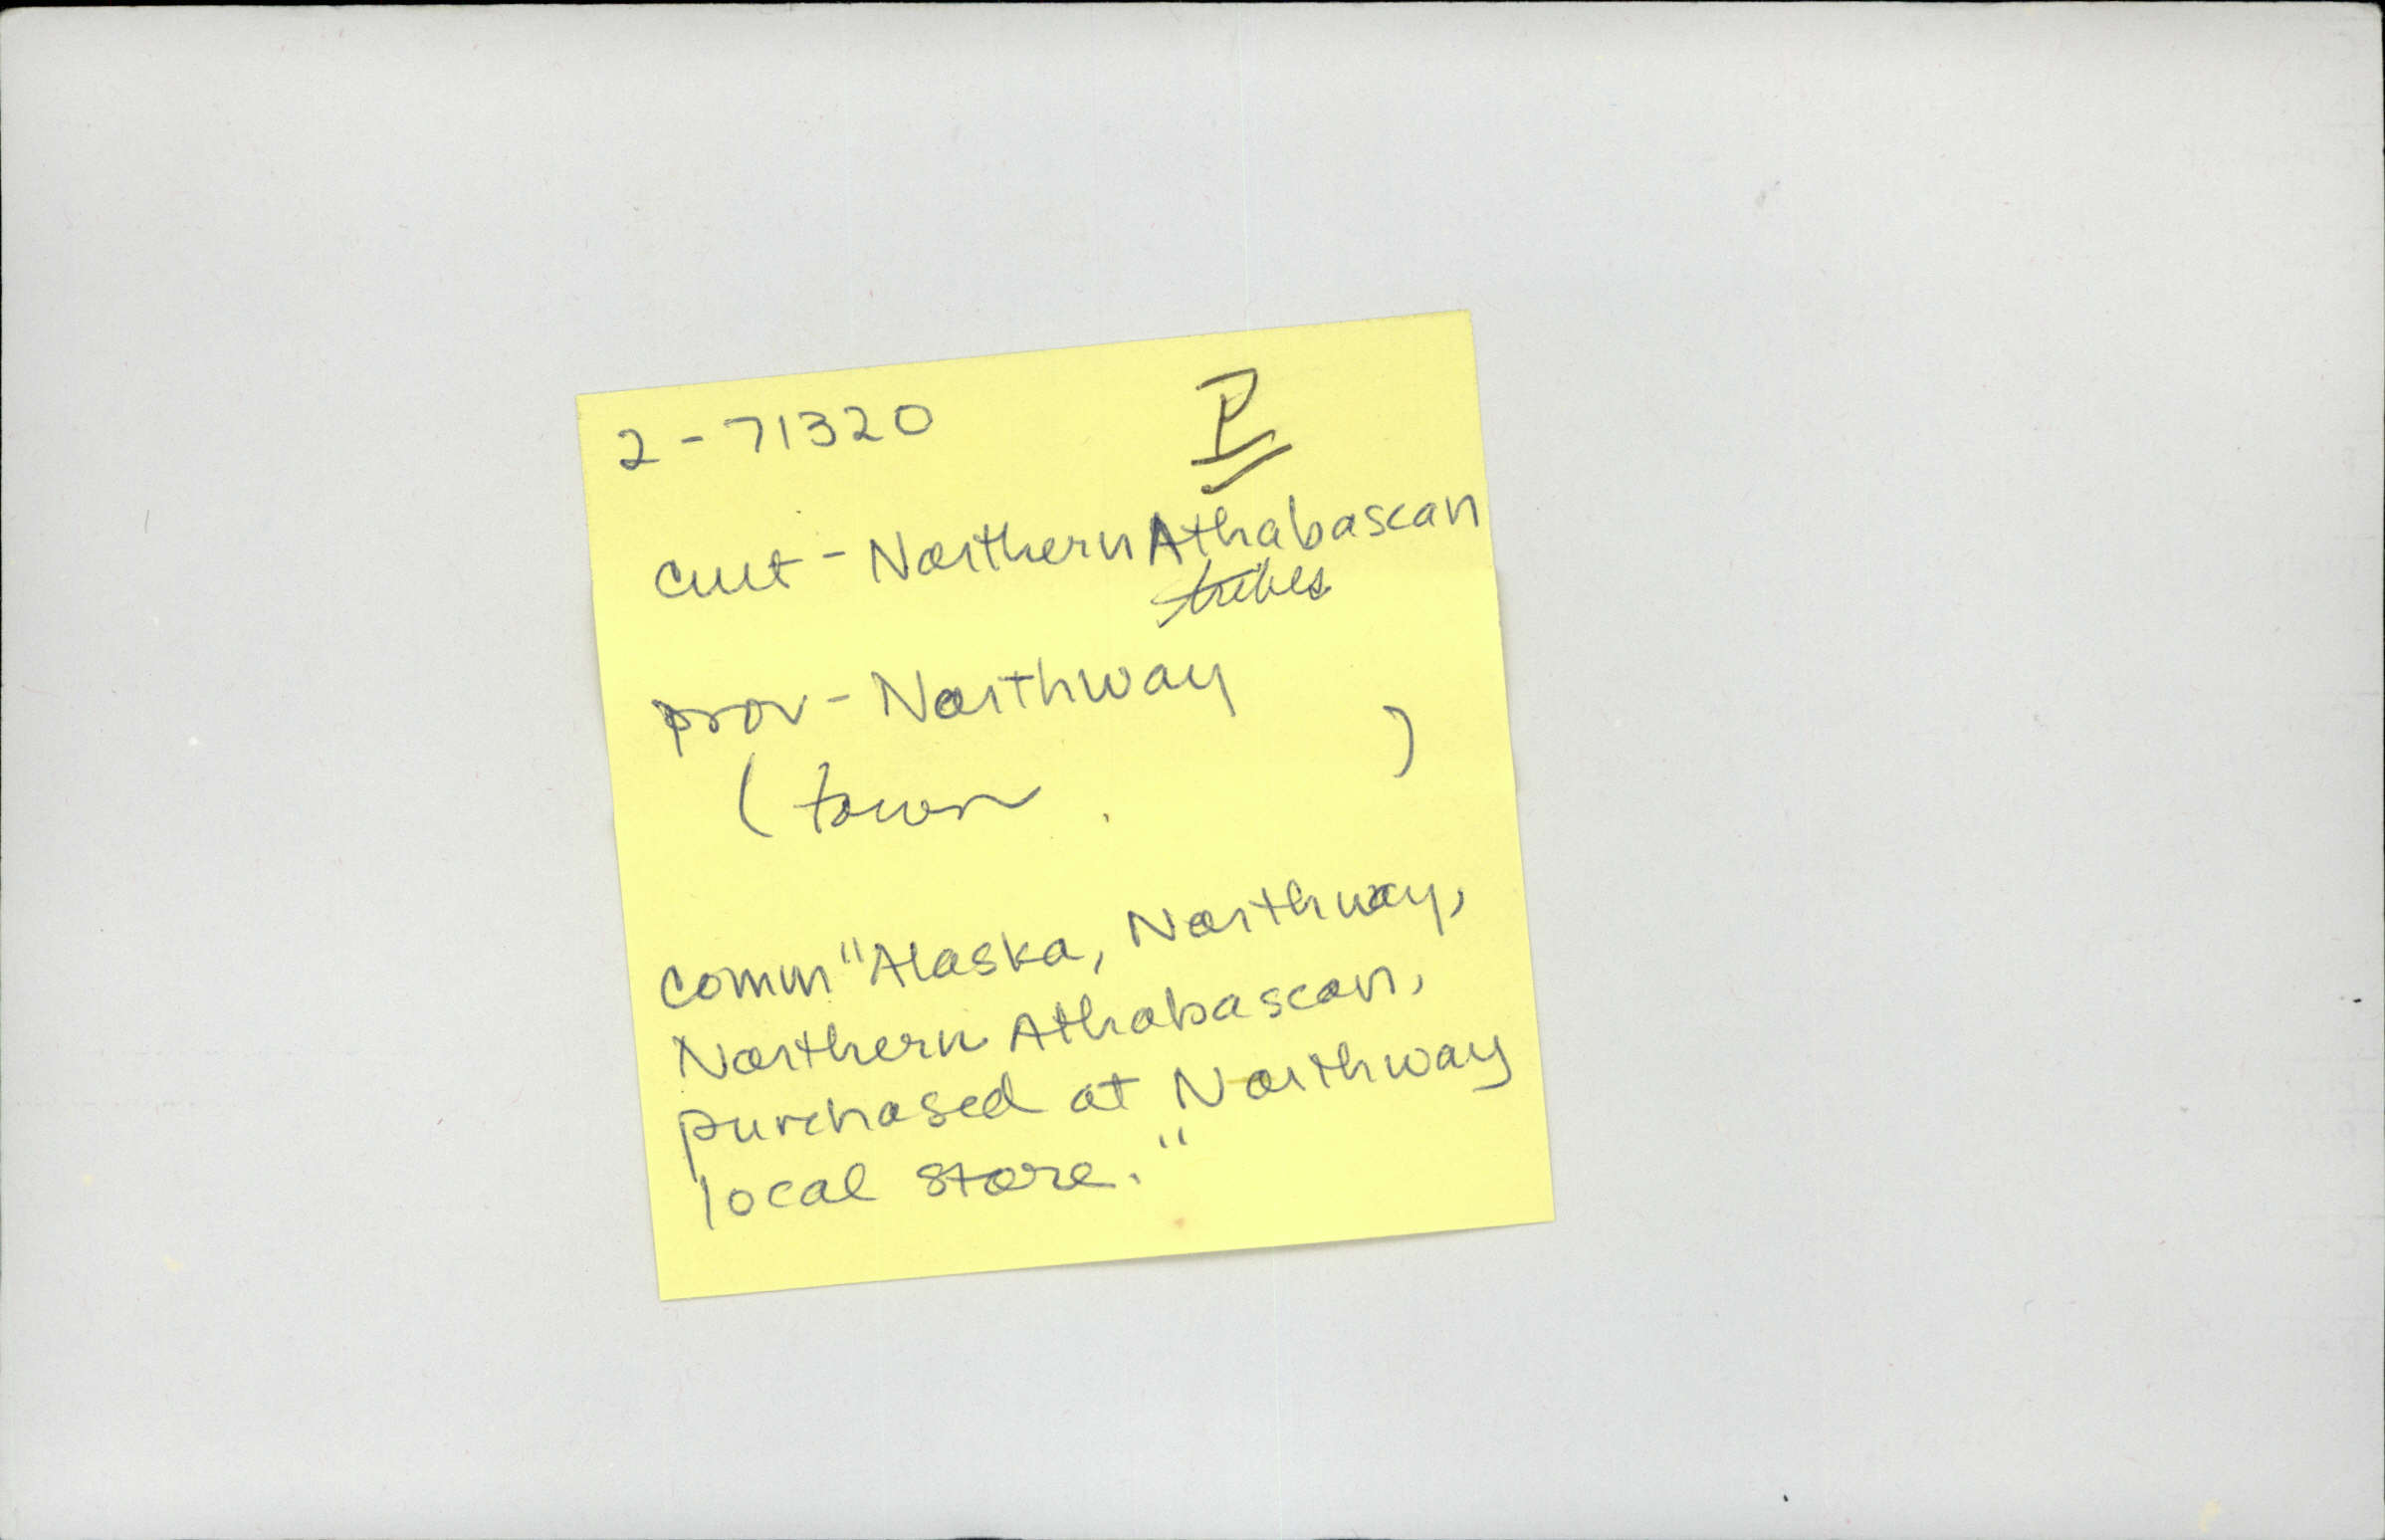 2-71320 P
cult - Northern Athabascan
tribes
prov - Northway
(town )
comm "Alaska, Northway,
Northern Athabascan,
purchased at Northway
local store."